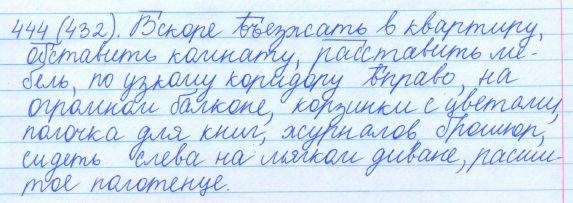 444 (432). Вскоре въезжать в квартиру,
обставить комнату, расставить ме-
бель, по узкому коридору вправо, на
огромном балконе, корзинки с цветами,
полочка для книг, журналов, брошюр,
сидеть слева на мягком диване, расши-
тое полотенце.